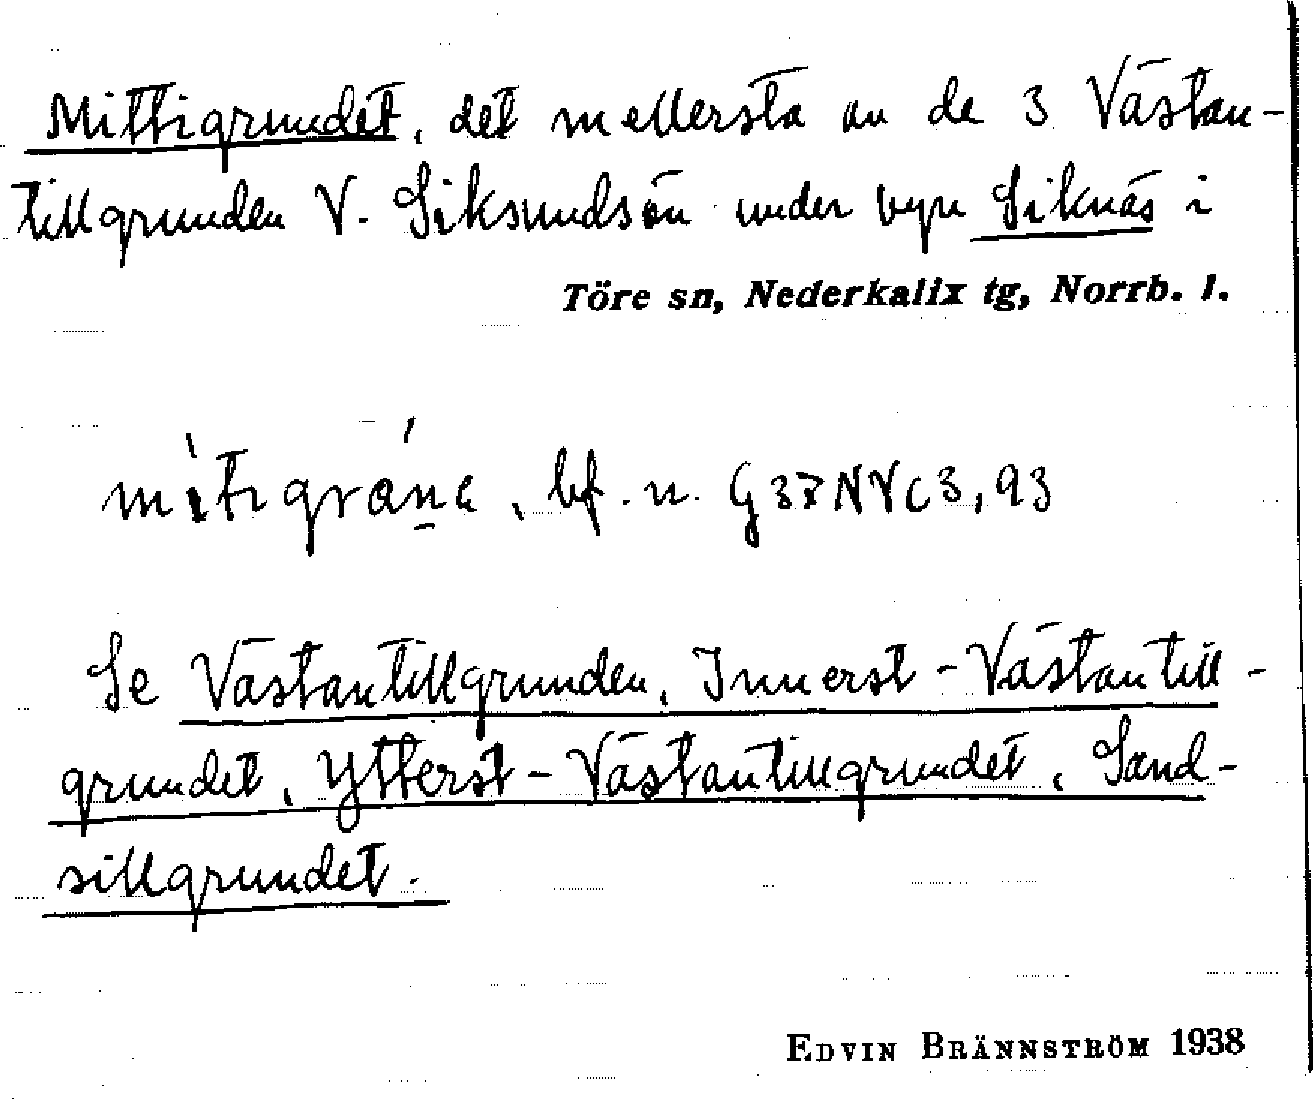 Mittigrundet, det mellersta av de 3 Västan-
tillgrunden V. Siksundsön under byn Siknäs i
Töre sn, Nederkalix tg, Norrb. l.
mìtigrán̠e, bf. n. G37NVC3,93
Se Västantillgrunden, Innerst-Västantill-
grundet, Ytterst-Västantillgrundet, Sand-
sillgrundet.
EDVIN BRÄNNSTRÖM 1938